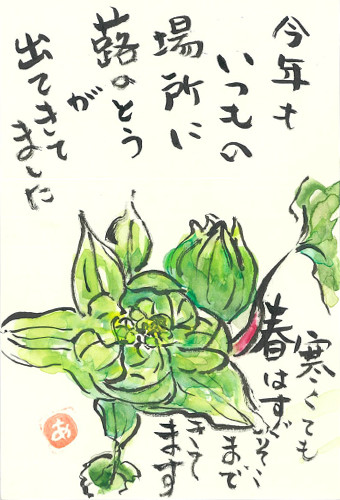 今年も
いつもの
場所に
蕗のとう
が
出てきて
ました
寒くても
春はすぐそこ
まで
きて
ます
あ